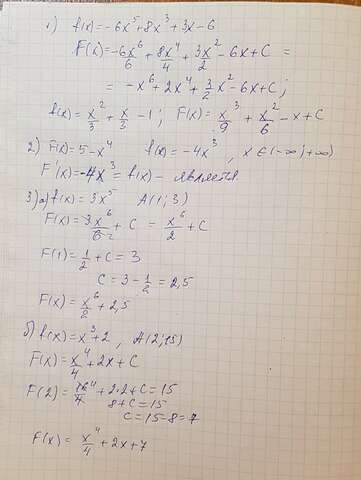 1) f(x) = -6x⁵ + 8x³ + 3x - 6
F(x) = -6x⁶/6 + 8x⁴/4 + 3x²/2 - 6x + C =
= -x⁶ + 2x⁴ + 3/2 x² - 6x + C ;
f(x) = x²/3 + x/3 - 1 ; F(x) = x³/9 + x²/6 - x + C
2) F(x) = 5 - x⁴ f(x) = -4x³ , x ∈ (-∞; +∞)
F'(x) = -4x³ = f(x) - является
3) а) f(x) = 3x⁵ A(1; 3)
F(x) = 3x⁶/6₂ + C = x⁶/2 + C
F(1) = 1/2 + C = 3
C = 3 - 1/2 = 2,5
F(x) = x⁶/2 + 2,5
б) f(x) = x³ + 2 , A(2; 15)
F(x) = x⁴/4 + 2x + C
F(2) = 16⁴/4 + 2·2 + C = 15
8 + C = 15
C = 15 - 8 = 7
F(x) = x⁴/4 + 2x + 7